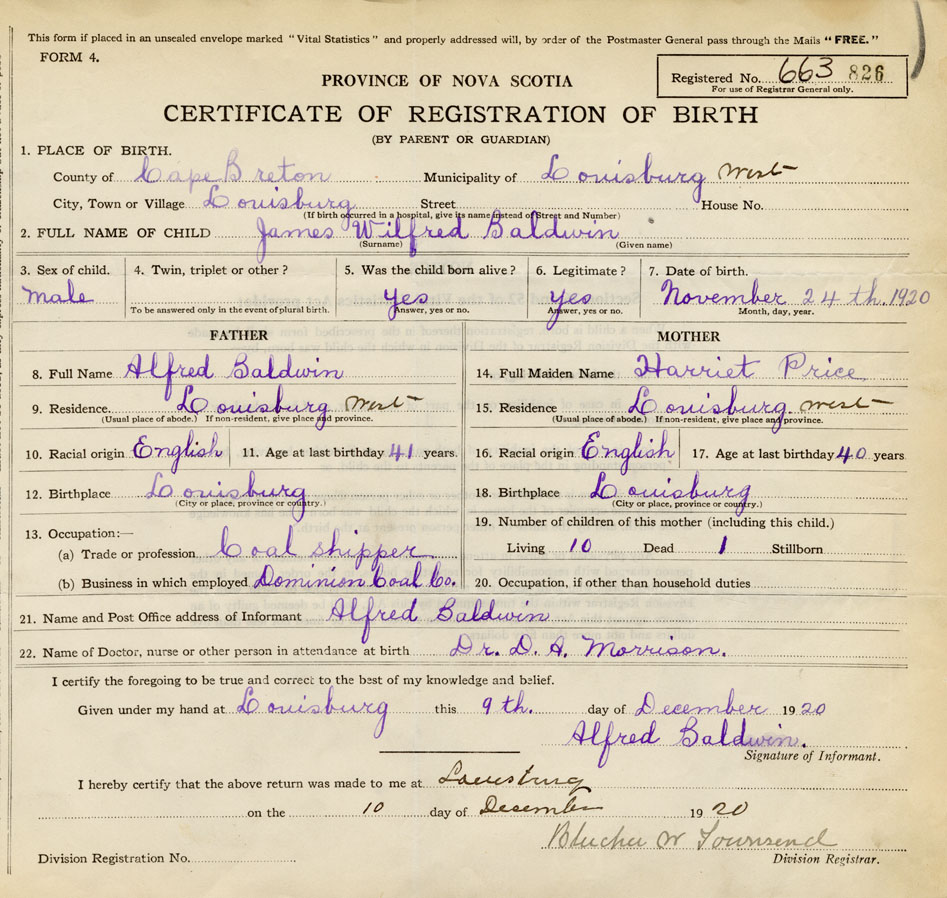 This form if placed in an unsealed envelope marked "Vital Statistics" and properly addressed will, by order of the Postmaster General pass through the Mails "FREE."
FORM 4.
PROVINCE OF NOVA SCOTIA
Registered No. 663 826
For use of Registrar General only.
CERTIFICATE OF REGISTRATION OF BIRTH
(BY PARENT OR GUARDIAN)
1. PLACE OF BIRTH.
County of Cape Breton Municipality of Louisburg West
City, Town or Village Louisburg Street House No.
(If birth occurred in a hospital, give its name instead of Street and Number)
2. FULL NAME OF CHILD James Wilfred Baldwin
(Surname) (Given name)
3. Sex of child. 4. Twin, triplet or other? 5. Was the child born alive? 6. Legitimate? 7. Date of birth.
Male yes yes November 24th. 1920
To be answered only in the event of plural birth. Answer, yes or no. Answer, yes or no. Month, day, year.
FATHER MOTHER
8. Full Name Alfred Baldwin 14. Full Maiden Name Harriet Price
9. Residence Louisburg West 15. Residence Louisburg West
(Usual place of abode.) If non-resident, give place and province. (Usual place of abode.) If non-resident, give place and province.
10. Racial origin English 11. Age at last birthday 41 years. 16. Racial origin English 17. Age at last birthday 40 years
12. Birthplace Louisburg 18. Birthplace Louisburg
(City or place, province or country.) (City or place, province or country.)
13. Occupation:— 19. Number of children of this mother (including this child.)
(a) Trade or profession Coal shipper Living 10 Dead 1 Stillborn
(b) Business in which employed Dominion Coal Co. 20. Occupation, if other than household duties
21. Name and Post Office address of Informant Alfred Baldwin
22. Name of Doctor, nurse or other person in attendance at birth Dr. D. A. Morrison.
I certify the foregoing to be true and correct to the best of my knowledge and belief.
Given under my hand at Louisburg this 9th. day of December 1920
Alfred Baldwin.
Signature of Informant.
I hereby certify that the above return was made to me at Louisburg
on the 10 day of December 1920
W Townsend
Division Registration No. Division Registrar.